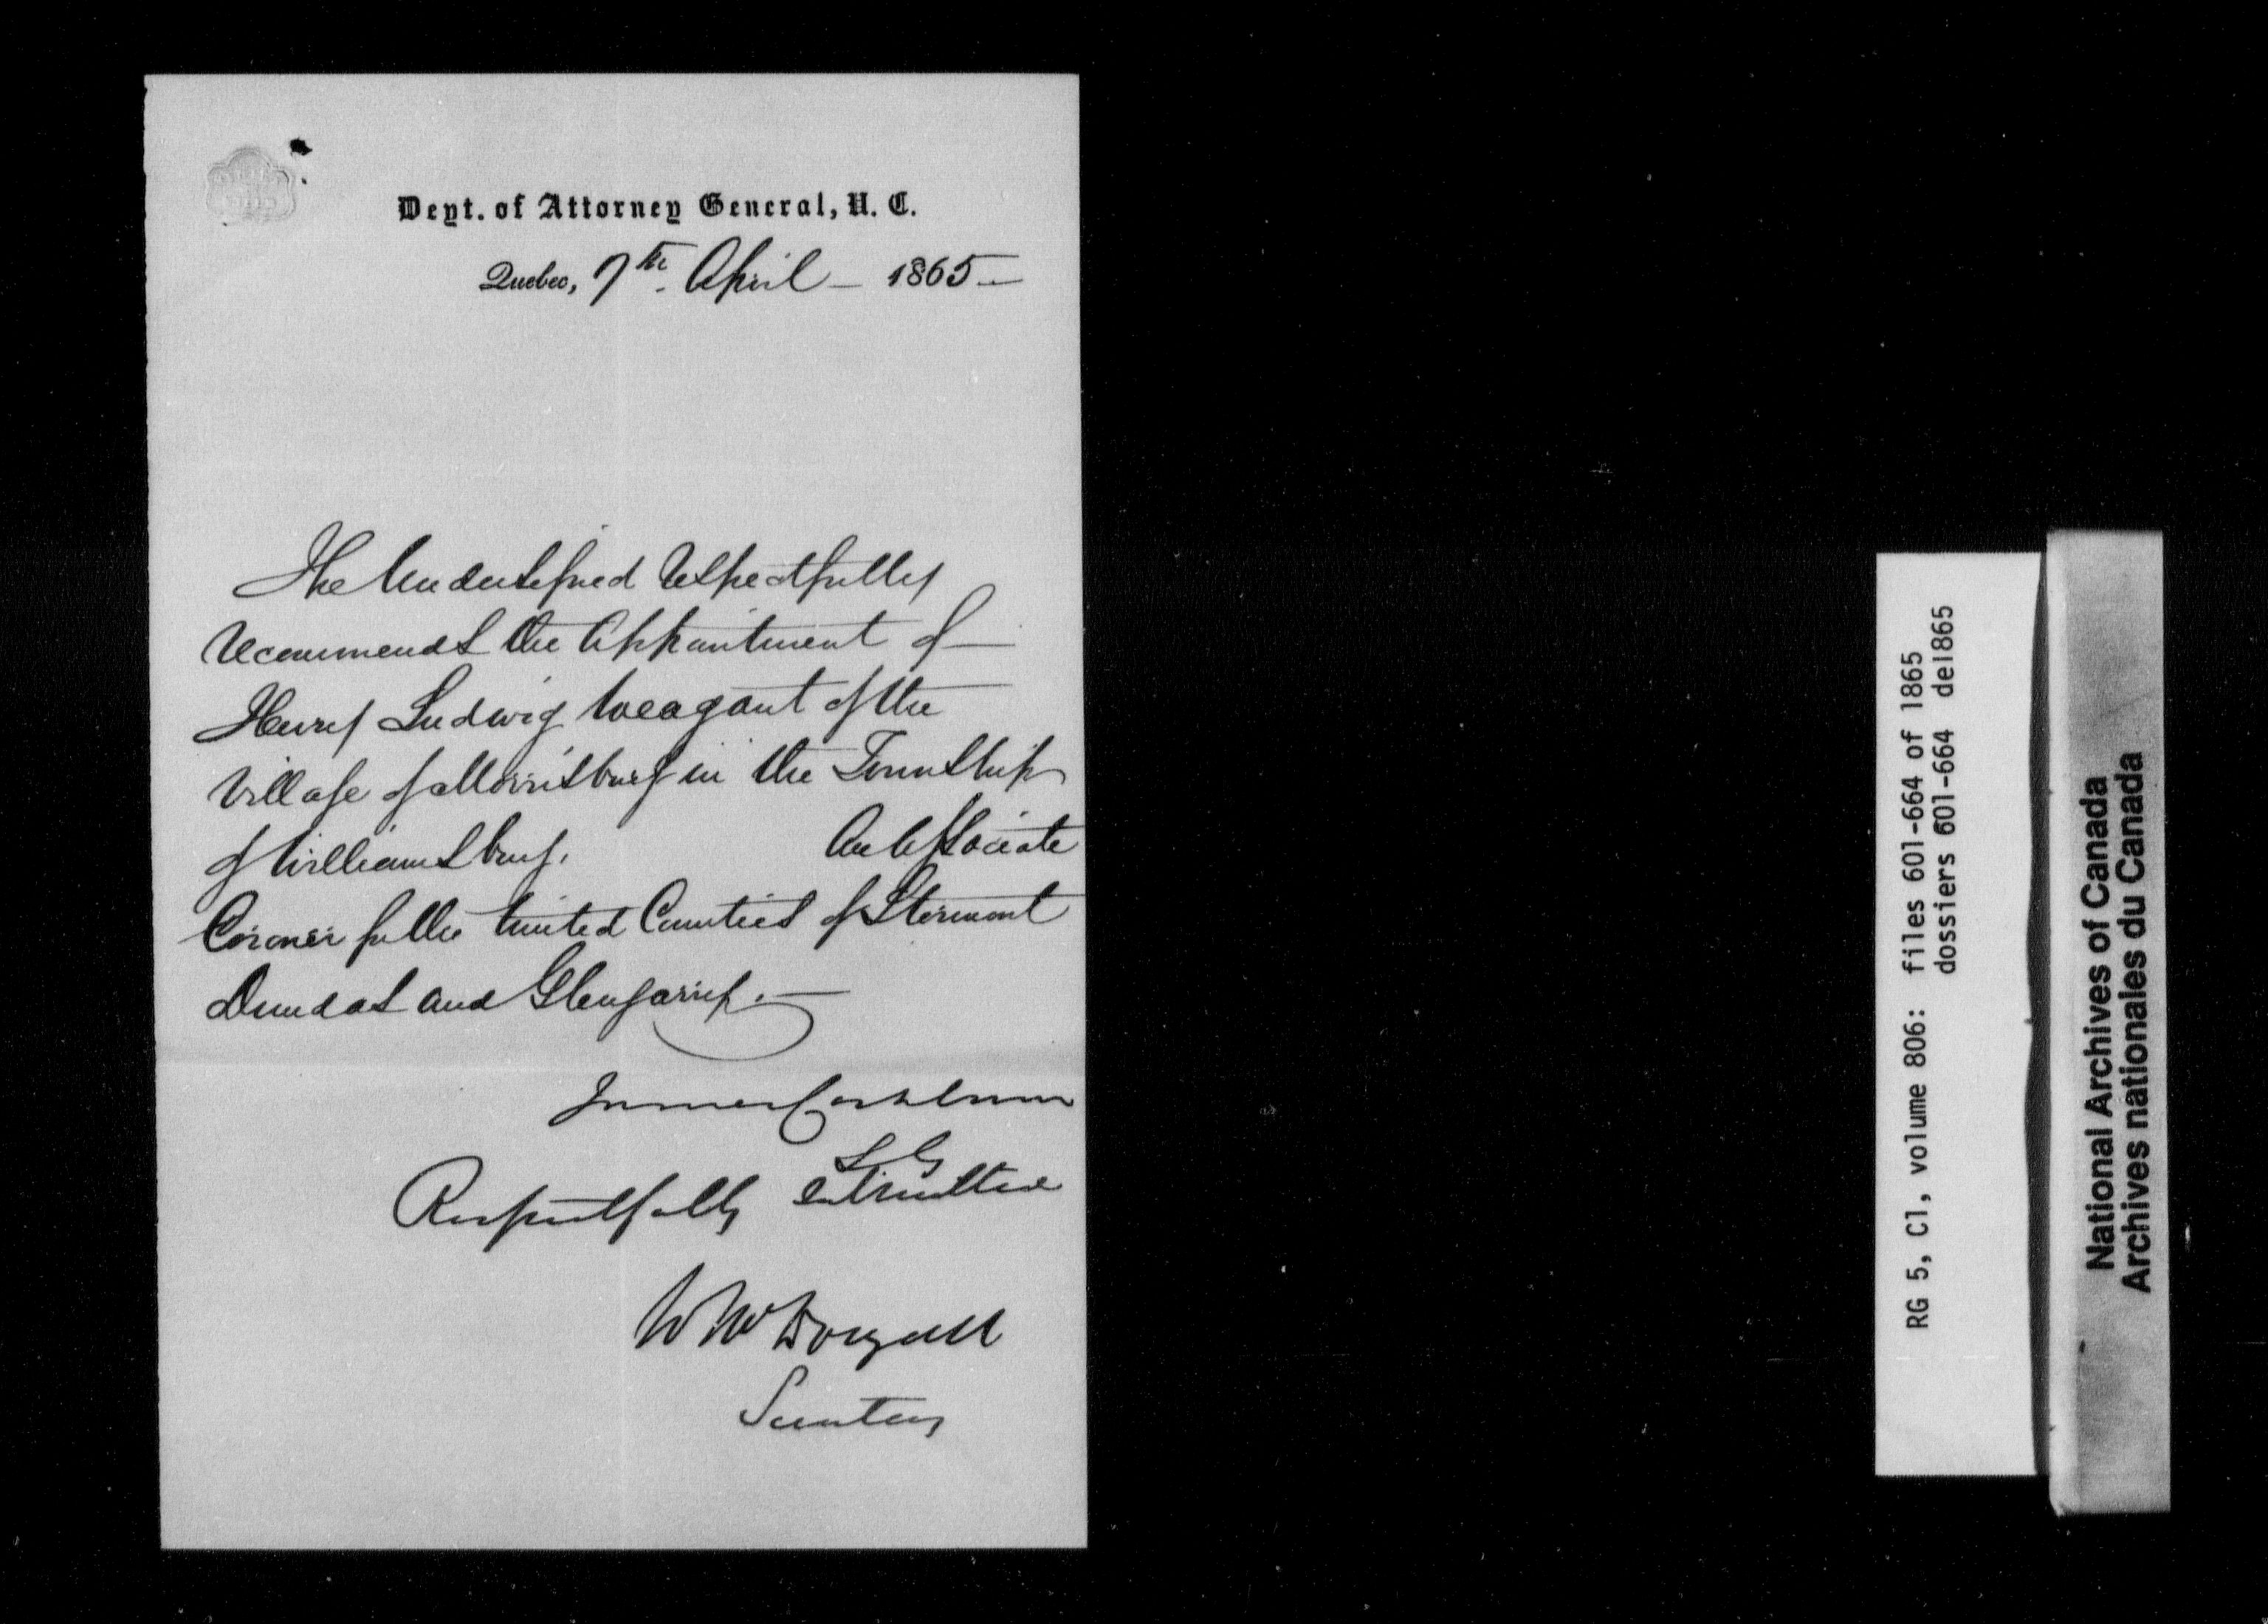 Dept. of Attorney General, U. C.
Quebec, 7th. April – 1865 –
The Undersigned respectfully
recommends the Appointment of –
Henry Ludwig Weagant of the
Village of Morrisburg in the Township
of Williamsburg. An Associate
Coroner for the United Counties of Stormont
Dundas and Glengarry. –
James Cockburn
S G
Respectfully submitted
W McDougall
Secretary
RG 5, C1, volume 806: files 601-664 of 1865
dossiers 601-664 de1865
National Archives of Canada
Archives nationales du Canada